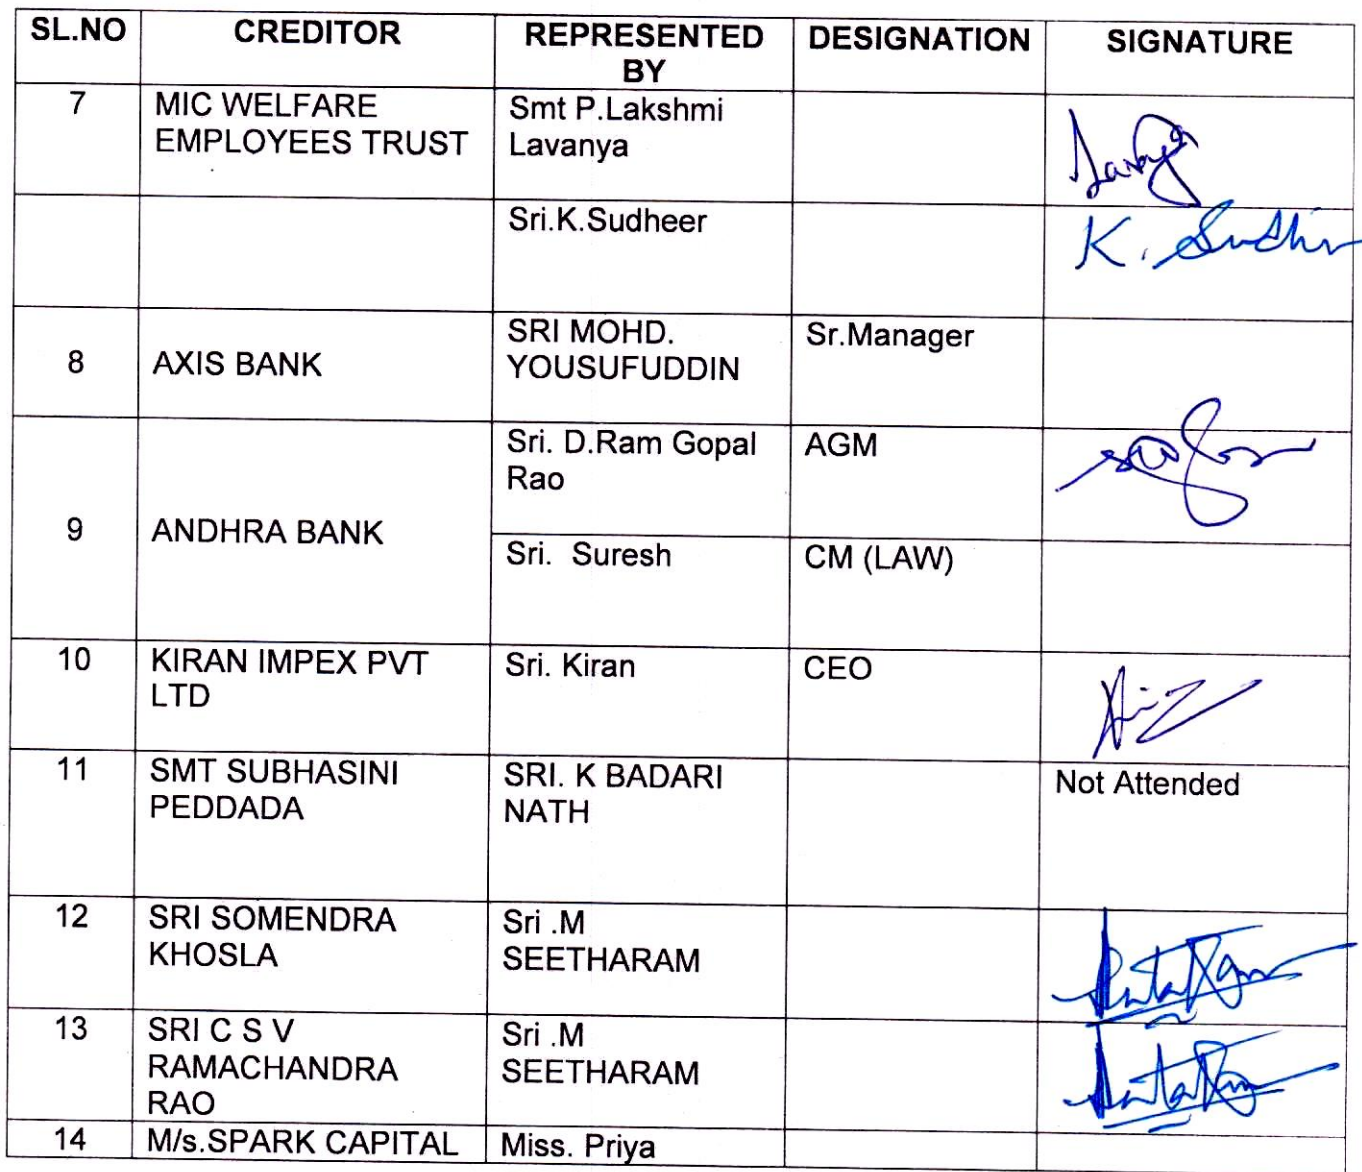 SL.NO CREDITOR REPRESENTED BY DESIGNATION SIGNATURE
7 MIC WELFARE EMPLOYEES TRUST Smt P.Lakshmi Lavanya
Sri.K.Sudheer K. Sudhir
8 AXIS BANK SRI MOHD. YOUSUFUDDIN Sr.Manager
9 ANDHRA BANK Sri. D.Ram Gopal Rao AGM
Sri. Suresh CM (LAW)
10 KIRAN IMPEX PVT LTD Sri. Kiran CEO
11 SMT SUBHASINI PEDDADA SRI. K BADARI NATH Not Attended
12 SRI SOMENDRA KHOSLA Sri .M SEETHARAM
13 SRI C S V RAMACHANDRA RAO Sri .M SEETHARAM
14 M/s.SPARK CAPITAL Miss. Priya